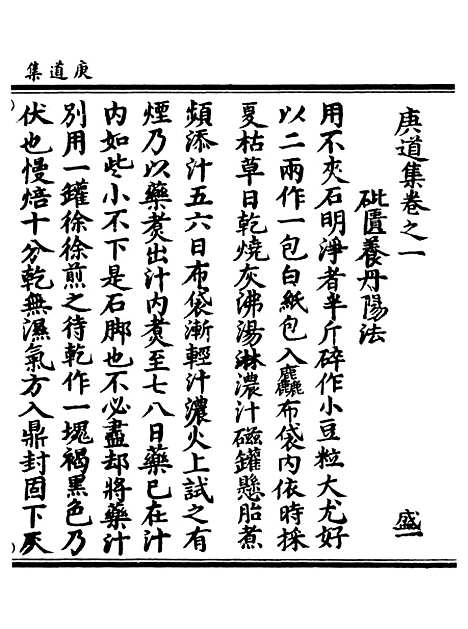 庚道集
庚道集卷之一
盛一
砒匱養丹陽法
用不夾石明淨者半斤碎作小豆粒大尤好
以二兩作一包白紙包入麤布袋內依時採
夏枯草日乾燒灰沸湯淋濃汁磁罐懸胎煮
頻添汁五六日布袋漸輕汁濃火上試之有
煙乃以藥煮出汁內煮至七八日藥已在汁
內如些小不下是石脚也不必盡却將藥汁
別用一罐徐徐煎之待乾作一塊褐黑色乃
伏也慢焙十分乾無濕氣方入鼎封固下灰